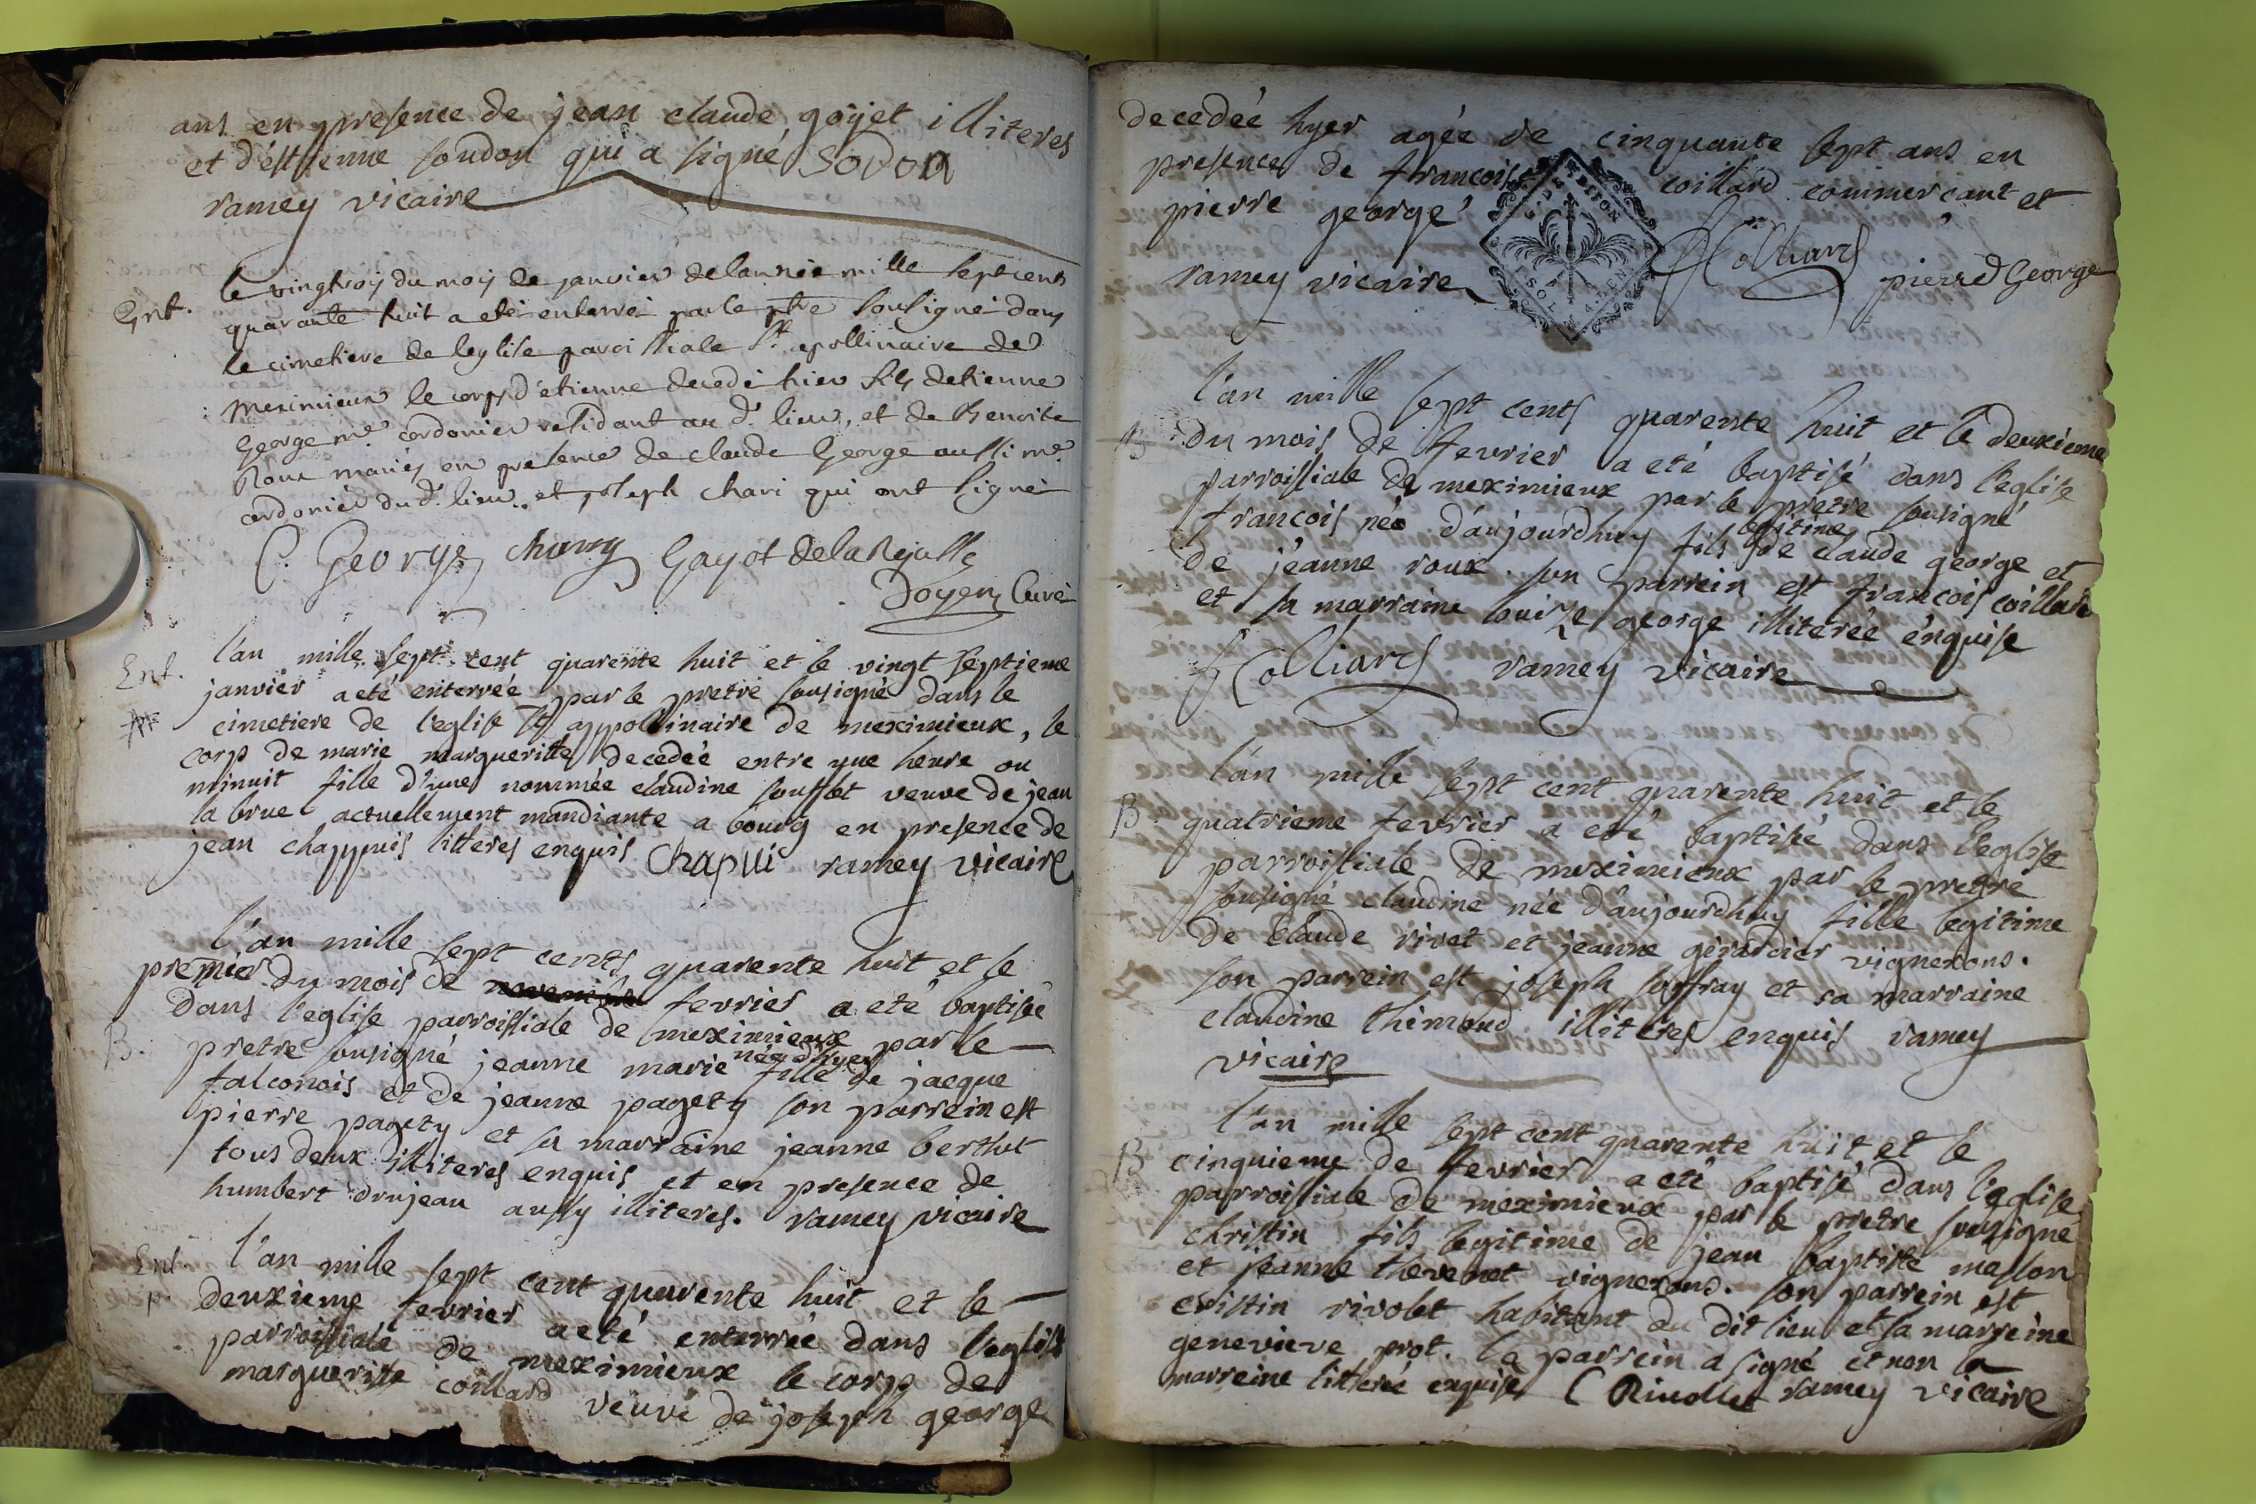 ans en presence de jean claude goÿet illiteres
et d'éstienne soudon qui a signé SODON
ramey vicaire
Ent.
le vingtroiz du moiz de janvier de lannée mille sept cents
quarante huit a eté enterré par le ptre soussigné dans
le cimetiere de leglise paroissiale St. apollinaire de
meximieux le corps d'etienne decedé hier fils detienne
George me. cordonier residant au d. lieu, et de Benoite
Roux mariéz en presence de claude George aussi me.
cordonier du d. lieu.. et joseph chari qui ont signé
C. George chary Gayot de la Rejasse
Doyen Curé
Ent.
l'an mille sept cent quarente huit et le vingt septieme
janvier a eté enterrée par le pretre sousigné dans le
cimetiere de l'eglise St appollinaire de meximieux, le
corp de marie margueritte decedeé entre une heure ou
minuit fille d'une nommée claudine soufflet veuve de jean
la brue actuellement mandiante a bourg en presence de
jean chappuis litteres enquis Chapui ramey vicaire
l'an mille sept cents quarente huit et le
premier du mois de fevrier a eté baptisée
dans l'eglise parroissiale de meximieux par le
B.
pretre sousigné jeanne marie née d'hyer fille de jacque
falconois et de jeanne pagety son parrein est
pierre pagety et sa marraine jeanne berthet
tous deux illiteres enquis et en presence de
humbert drujean aussy illiteres. ramey vicaire
Ent
p.
l'an mille sept cent quarente huit et le
deuxieme fevrier a eté enterrée dans l'eglise
parroissiale de meximieux le corps de
margueritte coillard veuve de joseph george
decedeé hyer agée de cinquante sept ans en
presence de francoise coillard commercant et
pierre george
ramey vicaire F Colliard pierre George
l'an mille sept cents quarente huit et le deuxieme
B
du mois de fevrier a eté baptisé dans l'eglise
parroissiale de meximieux par le pretre sousigné
francois née d'aujourdhuy fils legitime de claude george et
de jeanne roux. son parrein est francois coillard
et sa marraine louize george illiterée enquise
F Colliard ramey vicaire
l'an mille sept cent quarente huit et le
B.
quatrieme fevrier a eté baptiseé dans l'eglise
parroissiale de meximieux par le pretre
sousigné claudine née d'aujourdhuy fille legitime
de claude rivet et jeanne girardier vignerons.
son parrein est joseph soffray et sa marraine
claudine thimond illiteres enquis ramey
vicaire
l'an mille sept cent quarente huit et le
B
cinquieme de fevrier a eté baptisé dans l'eglise
parroissiale de meximieux par le pretre sousigné
christin fils legitime de jean baptiste meslon
et jeanne thevenet vignerons. son parrein est
cristin rivolet habitant du dit lieu et sa marreine
genevieve prot. le parrein a signé et non la
marreine litterée enquise C Rivollet ramey vicaire